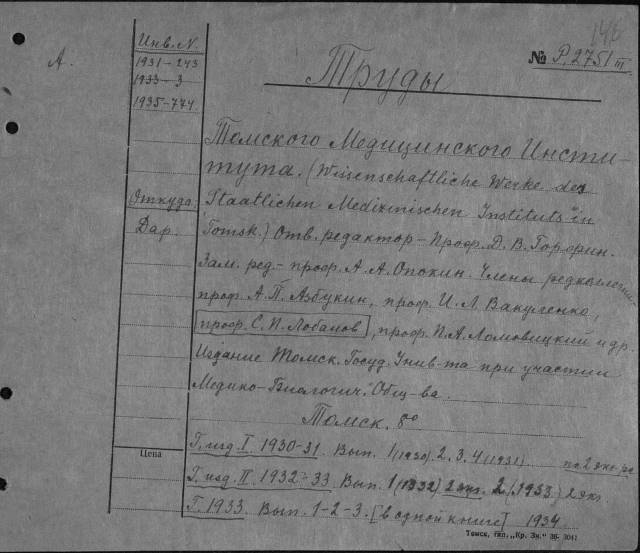 146
А.
Инв. N.
1931 – 243
1933 – 3
1935 – 774
№ Р. 2751 III
Труды
Томского Медицинского Инсти-
тута. (Wissenschaftliche Werke des
Staatlichen Medizinischen Instituts in
Tomsk.) Отв. редактор – Проф. Д. В. Горфин.
Откуда
Дар.
Зам. ред. – проф. А. А. Опокин. Члены редколлегии:
проф. А. П. Азбукин, проф. И. Л. Вакуленко,
проф. С. П. Лобанов, проф. П. А. Ломовицкий и др.
Издание Томск. Госуд. Унив-та при участии
Медико-Биологич. Общ-ва.
Томск. 8°
Цена
Г. изд. I. 1930-31. Вып. 1 (1930). 2. 3. 4 (1931). по 2 экз.
Г. изд. II. 1932-33 Вып. 1 (1932) 2 экз. 2 (1933) 2 экз.
Г. 1933. Вып. 1-2-3. [в одной книге] 1934
Томск, тип. „Кр. Зн.“ 36- 3041